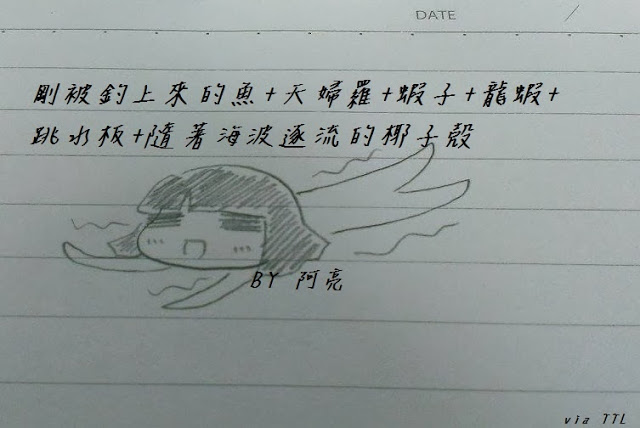 DATE /
剛被釣上來的魚+天婦羅+蝦子+龍蝦+
跳水板+隨著海波逐流的椰子殼
BY 阿亮
via TTL